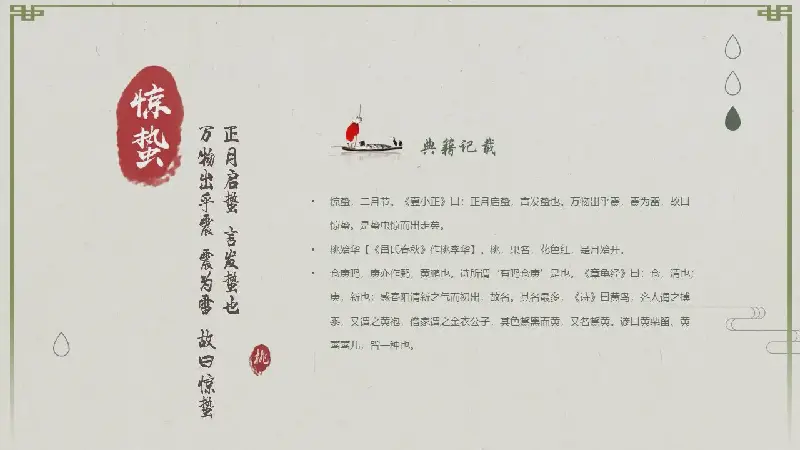 惊蛰
正月启蛰 言发蛰也
万物出乎震 震为雷 故曰惊蛰
桃
典籍记载
• 惊蛰，二月节。《夏小正》曰：正月启蛰，言发蛰也。万物出乎震，震为雷，故曰
惊蛰。是蛰虫惊而出走矣。
• 桃始华【《吕氏春秋》作桃李华】。桃，果名，花色红，是月始开。
• 仓庚鸣。庚亦作鹒，黄鹂也。诗所谓“有鸣仓庚”是也。《章龟经》曰：仓，清也；
庚，新也；感春阳清新之气而初出，故名。其名最多，《诗》曰黄鸟，齐人谓之搏
黍，又谓之黄袍，僧家谓之金衣公子，其色鵹黑而黄，又名鵹黄。谚曰黄栗留、黄
莺莺儿，皆一种也。